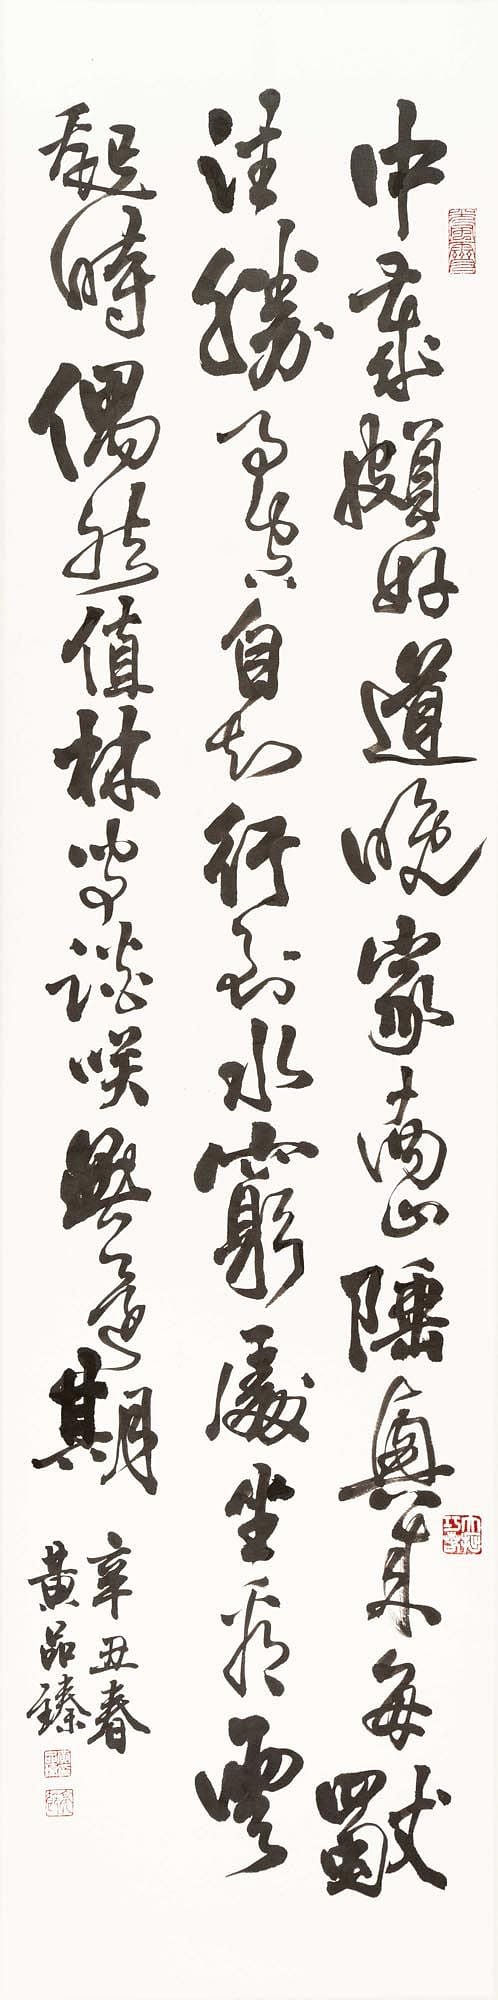 中歲頗好道晚家南山陲興來每獨
往勝事空自知行到水窮處坐看雲
起時偶然值林叟談咲無還期
辛丑春
黃品臻